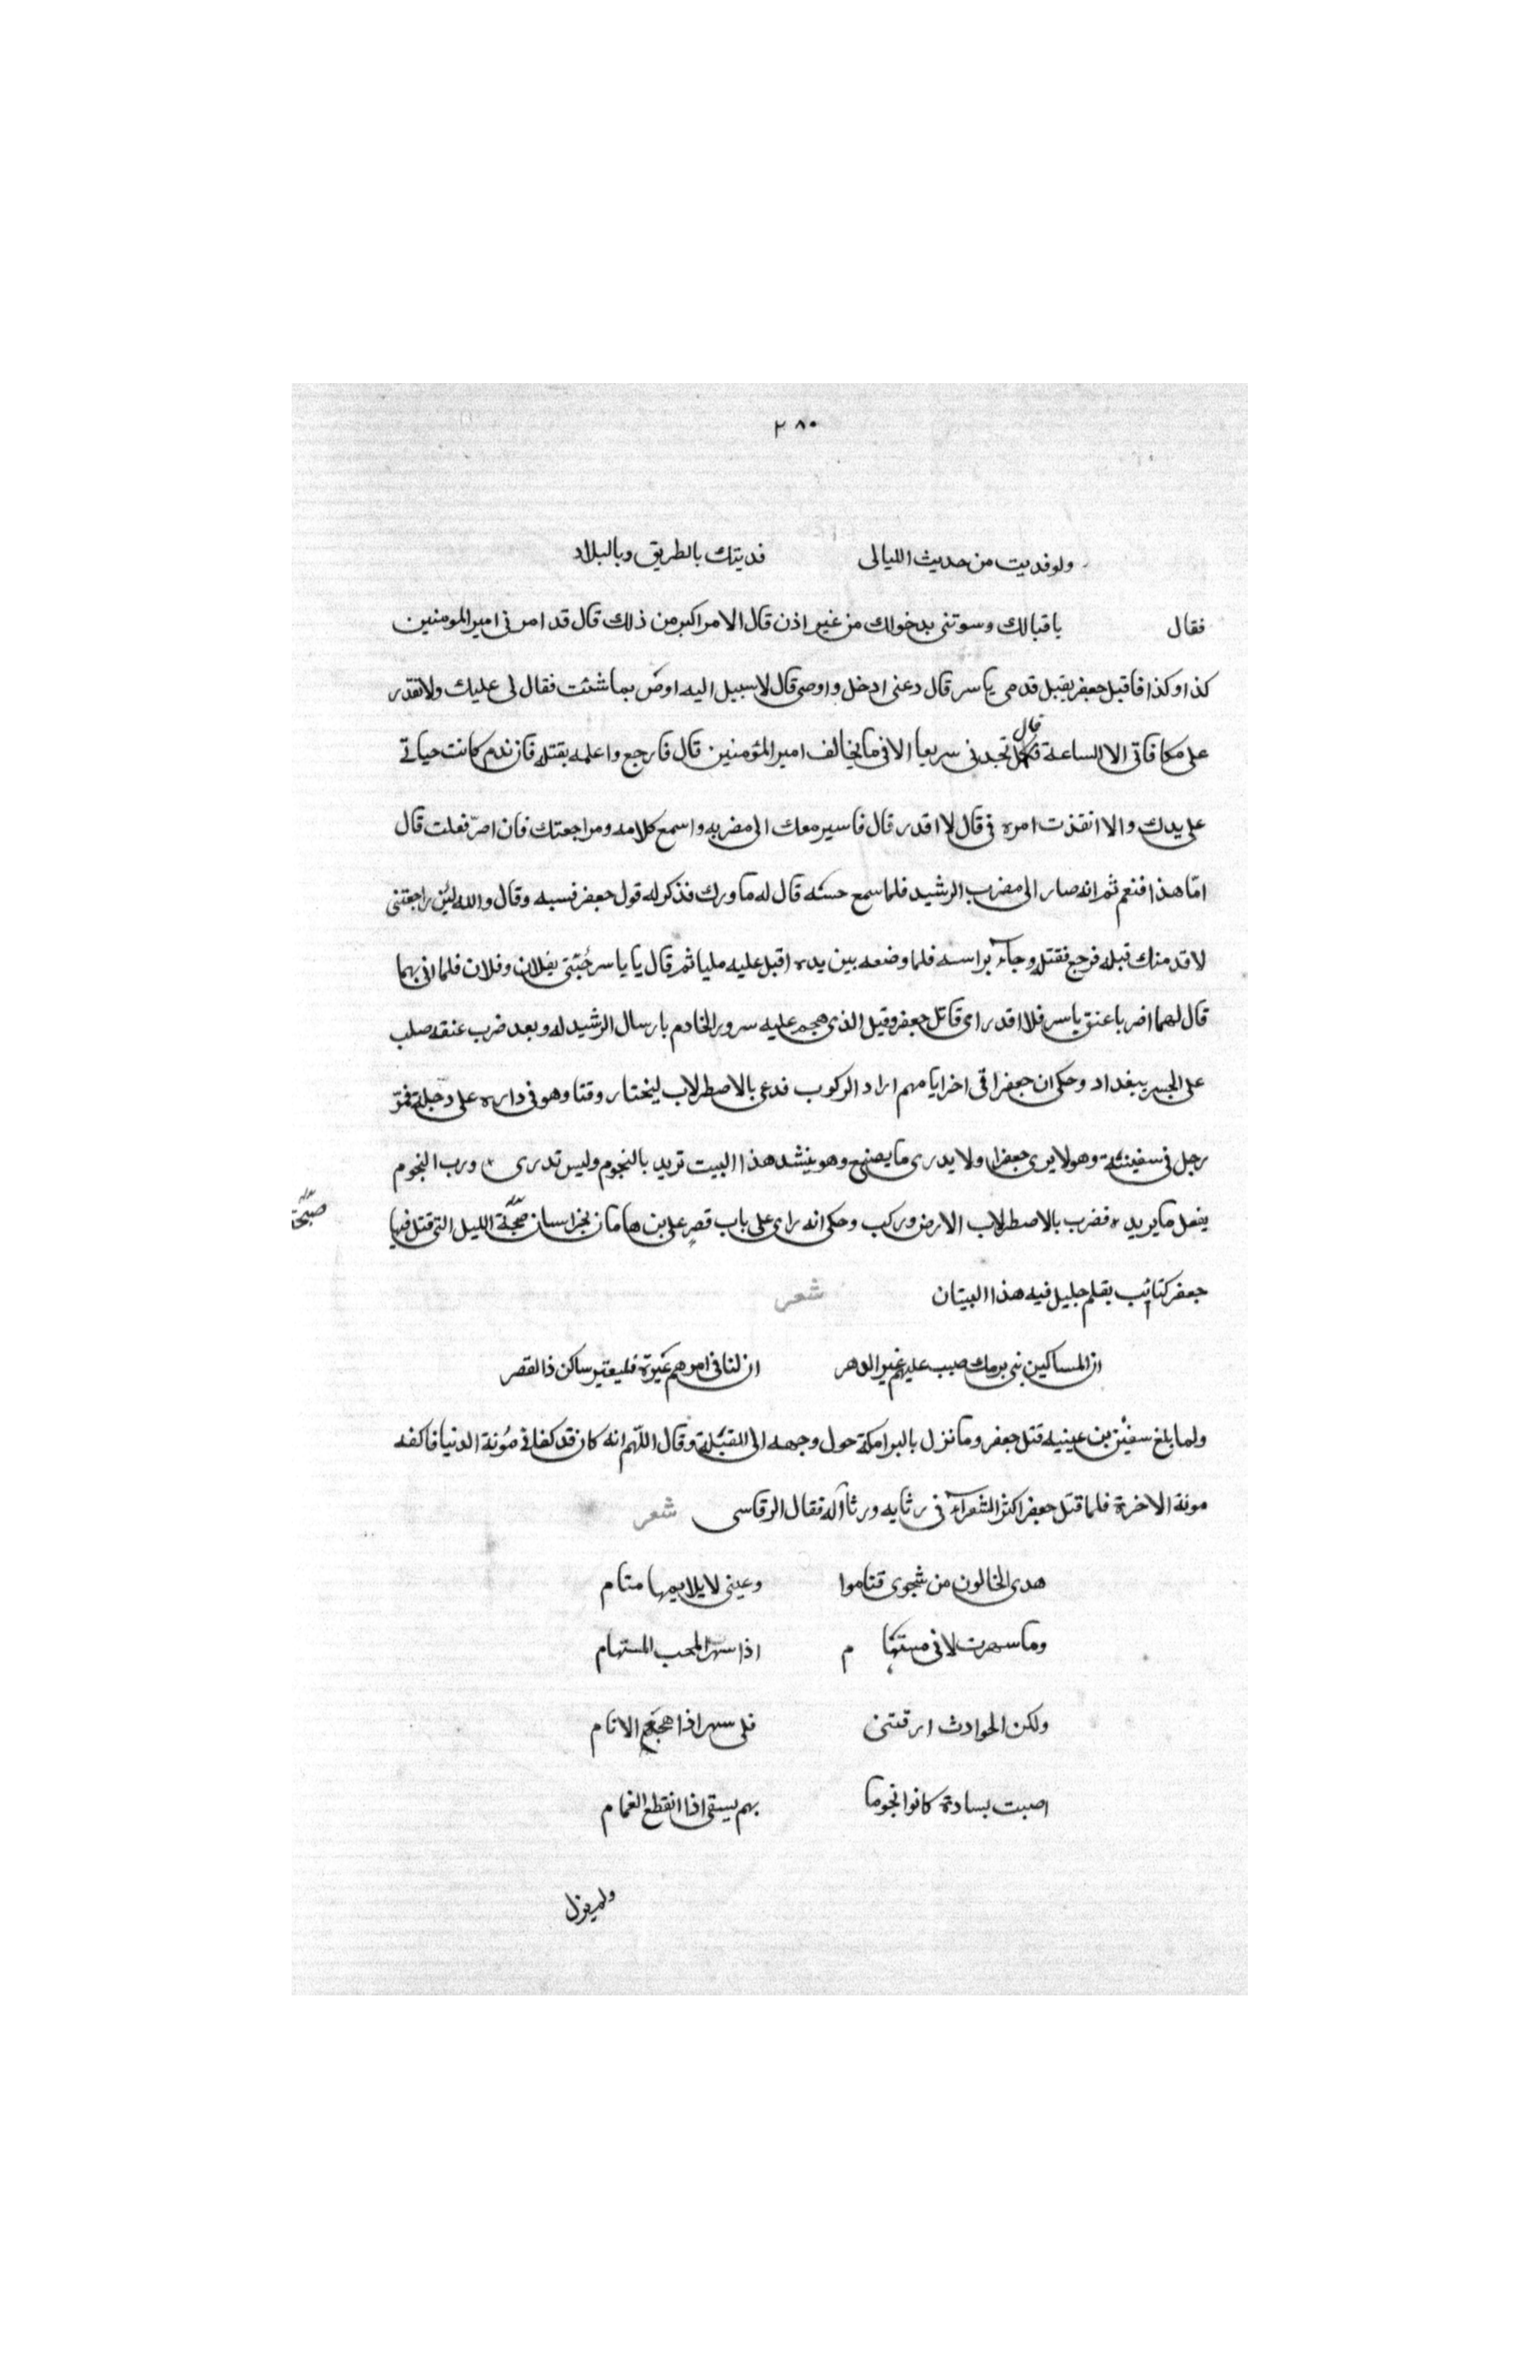 ٢٨٠
ولو فديت من حديث الليالى فديتك بالطريق وبالبلاد
فقال باقبالك وسوتنى بدخولك من غير اذن قال الامر اكبر من ذلك قال قد امرنى امير المومنين
كذا وكذا فاقبل جعفر يقبل قدمى ياسر قال دعنى ادخل واوصى قال لا سبيل اليه اوص بما شئت فقال لى عليك ولا تقدر
على مكافاتى الا الساعة قال تجدنى سريعا الا فى ما يخالف امير المؤمنين قال فارجع واعلمه بقتله فان ندم كانت حياتى
على يدك والا انفذت امره فى قال لا اقدر قال فاسير معك الى مضربه واسمع كلامه ومراجعتك فان اصرّ فعلت قال
امّا هذا فنعم ثم انه صار الى مضرب الرشيد فلما سمع حسّه قال له ما وراك فذكر له قول جعفر فسبه وقال والله لئن راجعتنى
لاقدمنك قبله فرجع فقتله وجآء براسه فلما وضعه بين يده اقبل عليه مليا ثم قال يا ياسر جئنى بفلان وفلان فلما اتى بهما
قال لهما اضربا عنق ياسر فلا اقدر ارى قاتل جعفر وقيل الذى هجم عليه سرور الخادم بارسال الرشيد له وبعد ضرب عنقه صلب
على الجسر ببغداد وحكى ان جعفرا فى اخر ايامهم اراد الركوب فدعى بالاصطرلاب ليختار وقتا وهو فى داره على دجلة فمرّ
رجل فى سفينة وهو لا يرى جعفرا ولا يدرى ما يصنع وهو ينشد هذا البيت تريد بالنجوم وليس تدرى ٭ ورب النجوم
يفعل ما يريد ٭ فضرب بالاصطرلاب الارض وركب وحكى انه راى على باب قصر على بن هامان بخراسان صبيحة الليل التى قتل فيها
صبيحة
جعفر كتايب بقلم جليل فيه هذا البيتان شعر
ان المساكين بنى برمك صبب عليهم غير الدهر ان لنا فى امرهم عبرة فليعتبر ساكن ذا القصر
ولما بلغ سفين بن عينيه قتل جعفر وما نزل بالبرامكة حول وجهه الى القبلة وقال اللّهم انه كان قد كفانى مُونة الدنيا فاكفه
مونة الاخرة فلما قتل جعفر اكثر الشعرآء فى رثايه ورثا آله فقال الرقاسى شعر
هدى الخالون من شجوى فناموا وعينى لا يلايمها منام
وما سهرت لانى مستها م اذا سهر المحب المستهام
ولكن الحوادث ارقتنى فلى سهر اذا هجع الانام
اصبت بسادة كانوا نجوما بهم يسقى اذا انقطع الغمام
ولم يزل